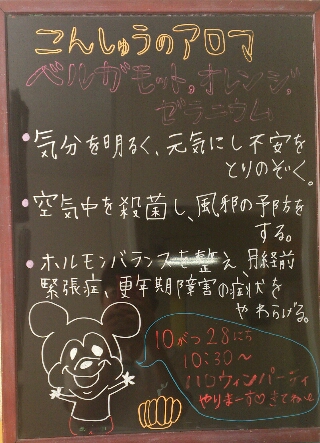 こんしゅうのアロマ
ベルガモット。オレンジ。
ゼラニウム
・気分を明るく、元気にし不安を
とりのぞく。
・空気中を殺菌し、風邪の予防を
する。
・ホルモンバランスを整え、月経前
緊張症、更年期障害の症状を
やわらげる。
10がつ28にち
10:30～
ハロウィンパーティ
やりまーす♡きてね～